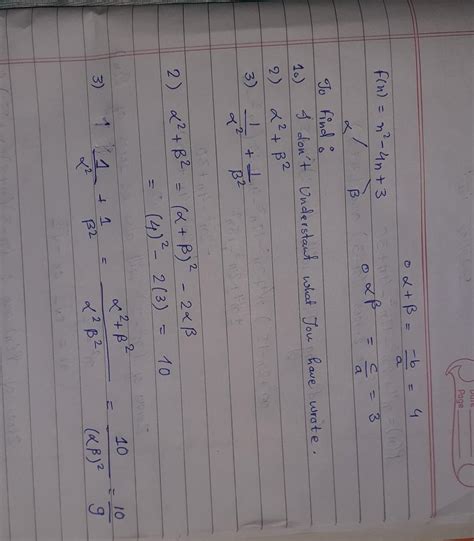 Date
Page
f(n) = n² - 4n + 3
α β
o α + β = -b/a = 4
o αβ = c/a = 3
To find :
1.) I don't Understant what You have wrote.
2) α² + β²
3) 1/α² + 1/β²
2) α² + β² = (α + β)² - 2αβ
= (4)² - 2(3) = 10
3) 1 1/α² + 1/β² = α² + β²/α²β² = 10/(αβ)² = 10/9